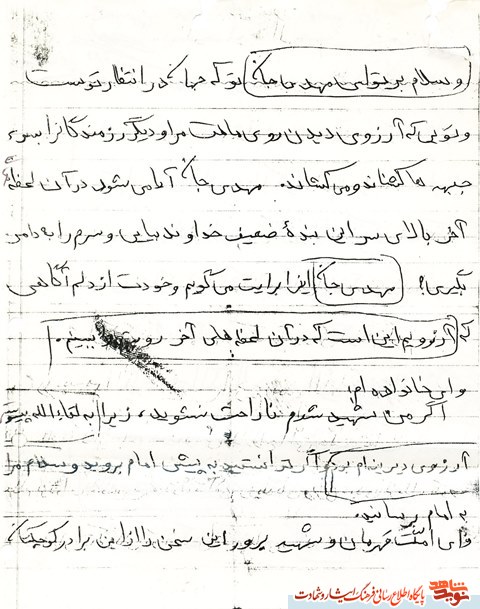 وسلام بر تو ای مهدی جان، تو که جهان در انتظار توست
و تویی که آرزوی دیدن روی ماهت مرا و دیگر رزمندگان را بسوی
جبهه ها کشانده و می کشاند. مهدی جان آیا می شود در آن لحظه های
آخر بالای سر این بندهٔ ضعیف خداوند بیایی و سرم را به دامن
بگیری؟ مهدی جان این را برایت می گویم و خودت از دلم آگاهی
که آرزویم این است که در آن لحظه های آخر رویت را ببینم.
و ای خانواده ام،
اگر من شهید شدم ناراحت نشوید، زیرا به لقاءالله پیوستم
آرزوی دیدن امام بود اگر توانستید به پیش امام بروید و سلام مرا
به امام برسانید.
و ای امت قهرمان و شهید پرور این سخن را از این برادر کوچکتان
نوید شاهد
پایگاه اطلاع رسانی فرهنگ ایثار و شهادت